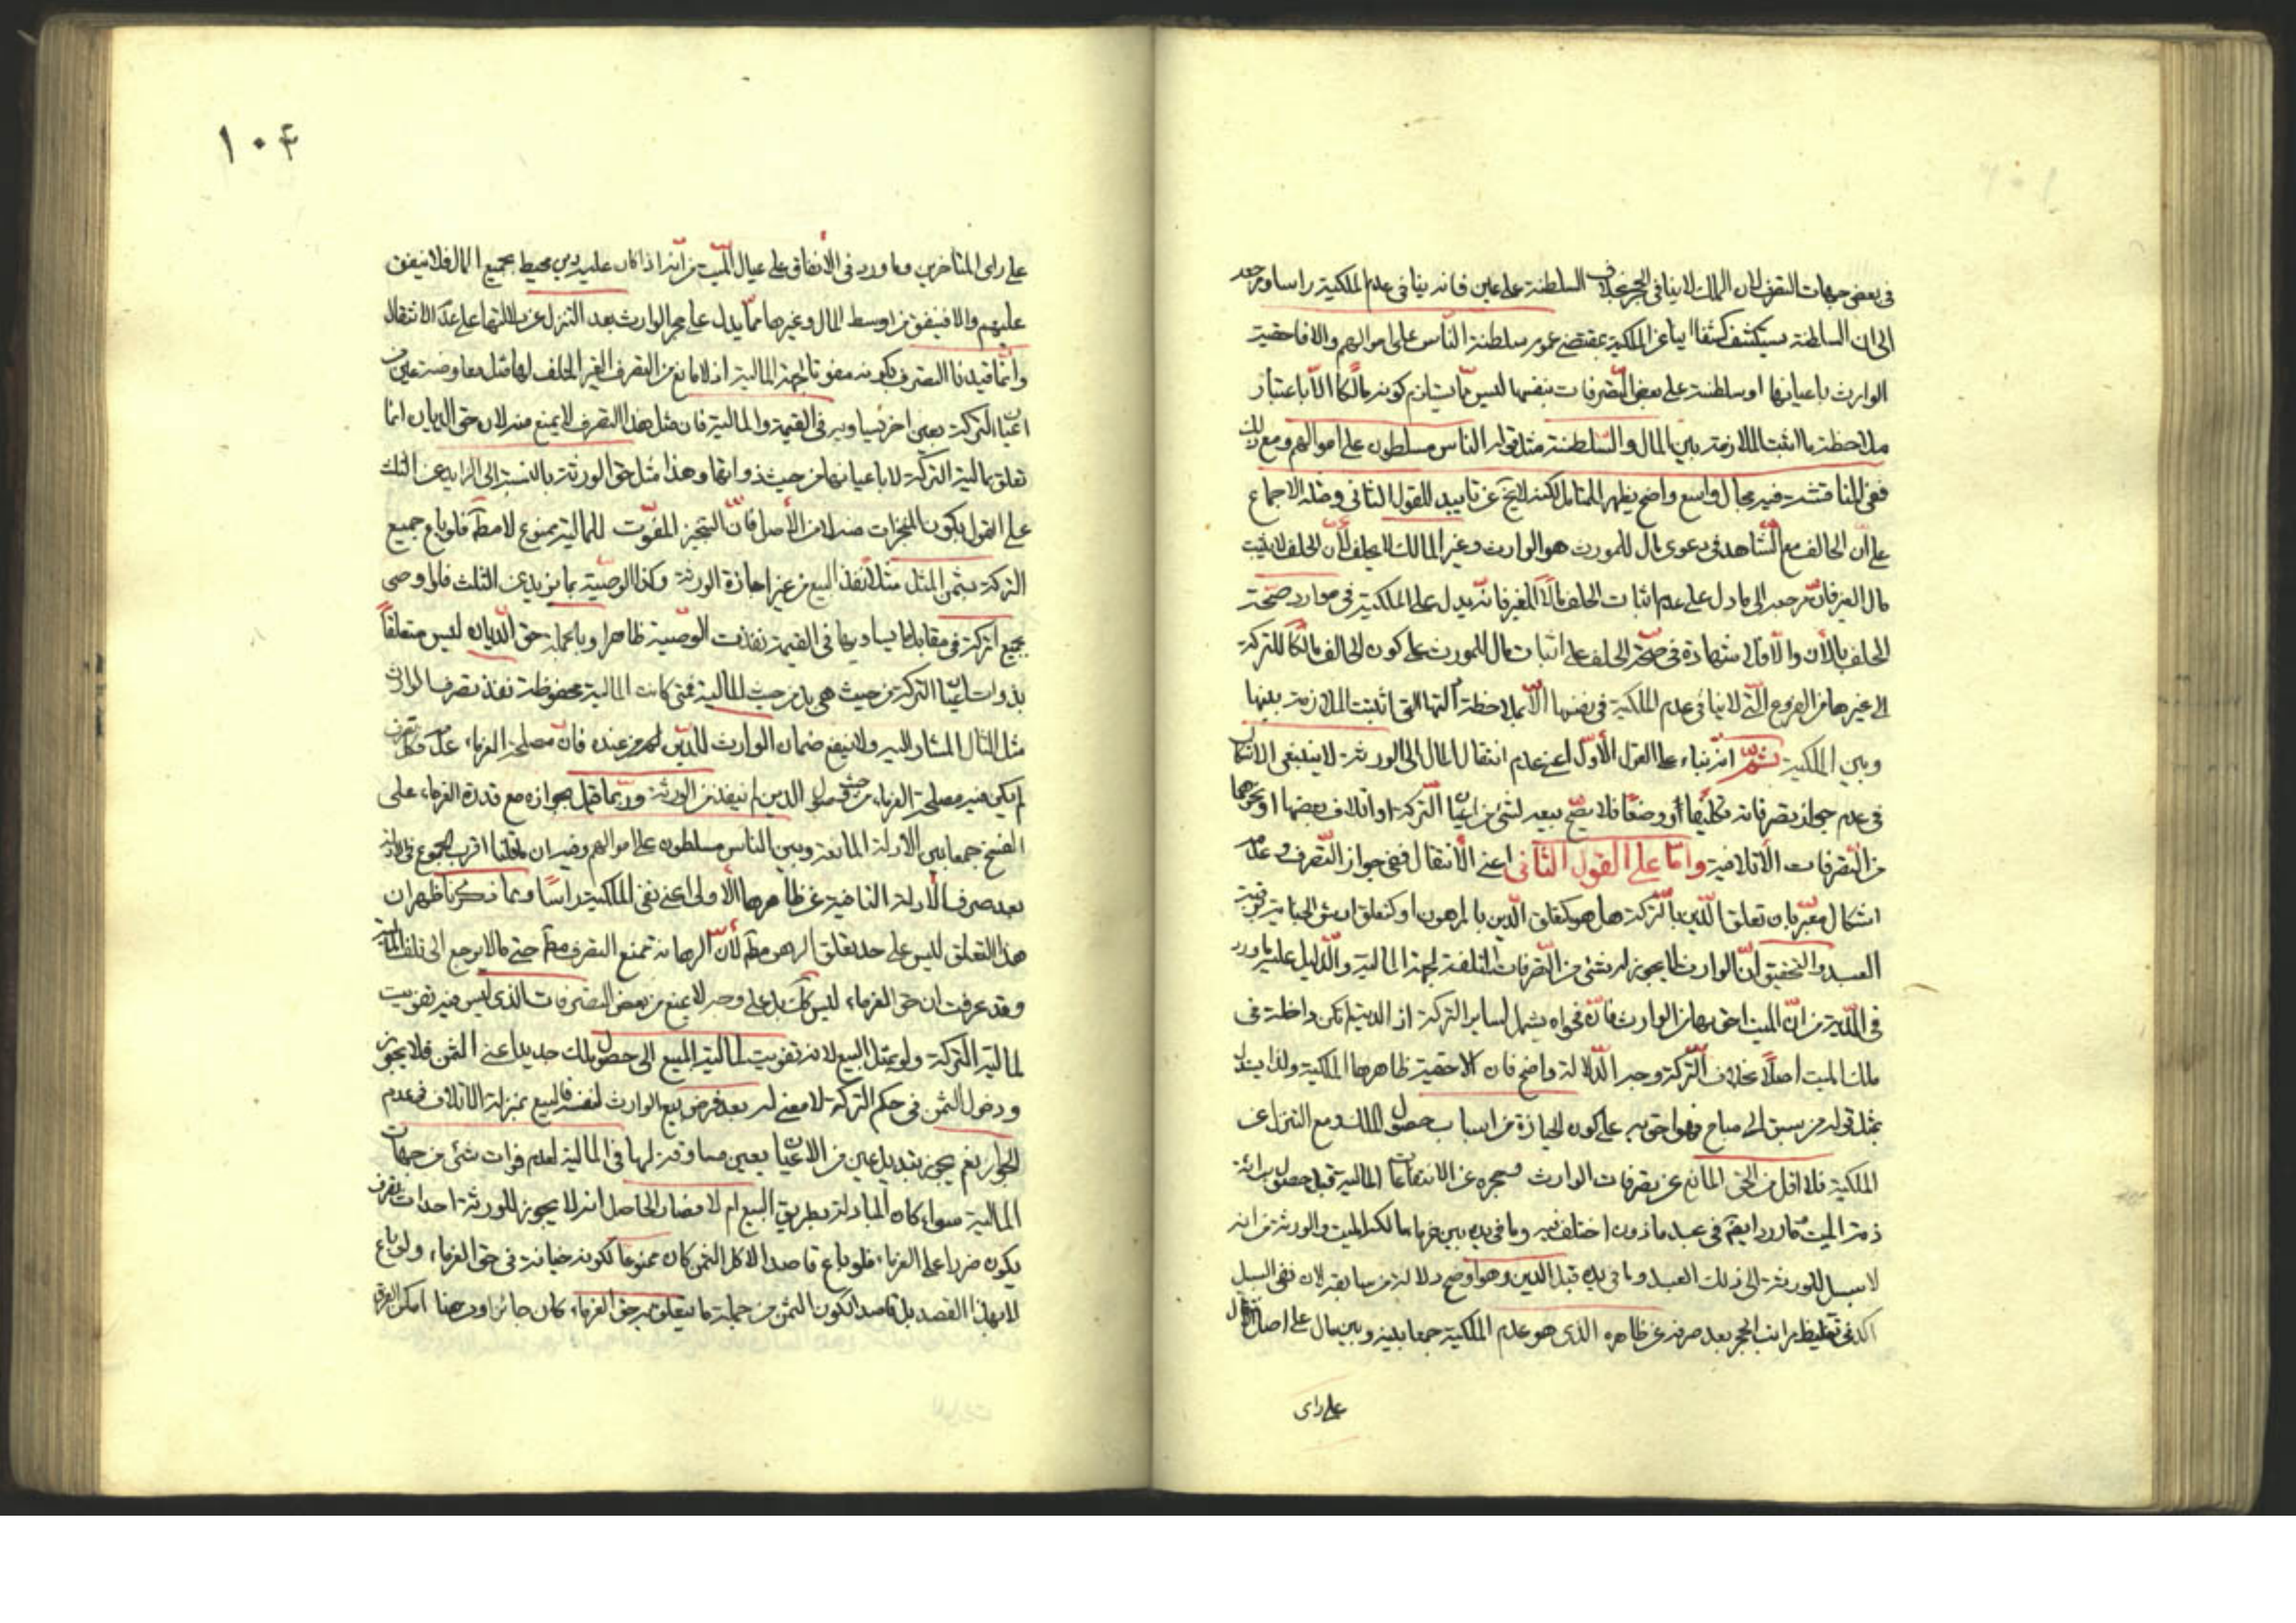 فى بعض جهات التصرف لان الملك لا ينافى الحجر بخلاف السلطنة على عين فانه ينافى عدم الملكية راسا ومرجعه
الى ان السلطنة يستكشف كشفا انيا عن الملكية بمقتضى عموم سلطنة الناس على اموالهم والا فاحقية
الوارث باعيانها او سلطنته على بعض التصرفات بنفسها ليس مما يستلزم كونه مالكا الا باعتبار
ملاحظة ما اثبت الملازمة بين المال والسلطنة مثل قوله الناس مسلطون على اموالهم ومع ذلك
ففى المناقشة فيه مجال واسع واضح يظهر للمتامل لكنه لا يخ عن تاييد للقول الثانى ومثله الاجماع
على ان الحالف مع الشاهد فى دعوى مال للمورث هو الوارث وغير المالك لا يحلف لان الحلف لا يثبت
مال الغير فان مرجعه الى ما دل على عدم اثبات الحلف مالا للغير فانه يدل على الملكية فى موارد صحة
الحلف بالان والا فلا شهادة فى صحة الحلف على اثبات مال للمورث على كون الحالف مالكا للتركة
الى غيرها من الفروع التى لا ينافى عدم الملكية فى نفسها الا بملاحظة ادلتها التى اثبتت الملازمة بينها
وبين الملكية ثم انه بناء على القول الاول اعنى عدم انتقال المال الى الورثة لا ينبغى الاشكال
فى عدم جواز تصرفاته تكليفا او وضعا فلا يصح بيعه لشئ من اعيان التركة او اتلاف بعضها او نحوهما
من التصرفات الاتلافية واما على القول الثانى اعنى الانتقال ففى جواز التصرف وعدمه
اشكال معبر بان تعلق الدين بالتركة هل هو كتعلق الدين بالمرهون او كتعلق ارش الجناية برقبة
العبد والتحقيق ان الوارث لا يجوز له شئ من التصرفات المتلفة لجهة المالية والدليل عليه ما ورد
فى الدية من ان الميت احق بها من الوارث فان فحواه يشمل لساير التركة اذ الدية لم تكن داخلة فى
ملك الميت اصلا بخلاف التركة وجه الدلالة واضح فان الاحقية ظاهرها الملكية ولذا يستدل
بمثل قوله من سبق الى مباح فهو احق به على كون الحيازة من اسباب حصول الملك ومع التنزل عن
الملكية فلا اقل من الحق المانع عن تصرفات الوارث وحجره عن الانتفاعات المالية قبل حصول برائة
ذمة الميت وما ورد ايضا فى عبد ماذون اختلف فيه وما فى يده بين غرماء مالكه الميت والورثة من انه
لا سبيل للورثة الى ذلك العبد وما فى يده قبل الدين وهو اوضح دلالة من سابقه لان نفى السبيل
اكد فى تغليظ مراتب الحجر بعد صرفه عن ظاهره الذى هو عدم الملكية جمعا بينه وبين مال على اصل الانتقال
على راى
١٠٤
على راى المتاخرين وما ورد فى الانفاق على عيال الميت من انه اذا كان عليه دين محيط بجميع المال فلا ينفق
عليهم والا فينفق من اوسط المال وغيرها مما يدل على حجر الوارث بعد التنزل عن دلالتها على عدم الانتقال
وانما قيدنا التصرف بكونه مفوتا لجهة المالية اذ لا مانع من التصرف الغير المخلف لها مثل معاوضة عين من
اعيان التركة بعين اخر يساويه فى القيمة والمالية فان مثل هذا التصرف لا يمنع منه لان حق الديان انما
تعلق بمالية التركة لا باعيانها من حيث ذواتها وهذا مثل حق الورثة بالنسبة الى الزايد عن الثلث
على القول بكون المنجزات منه لا من الاصل فان التنجيز المفوت للمالية ممنوع لا مطلقا فلو باع جميع
التركة بثمن المثل مثلا نفذ البيع من غير اجازة الورثة وكذا الوصية بما يزيد عن الثلث فلو اوصى
بجميع التركة فى مقابل ما يساويها فى القيمة نفذت الوصية ظاهرا وبالجملة حق الديان ليس متعلقا
بذوات اعيان التركة من حيث هى بل من حيث المالية فمتى كانت المالية محفوظة نفذ تصرف الوارث
مثل المثال المشار اليه ولا ينفع ضمان الوارث للدين لهم من عنده فان مصلحة الغرماء عدم فكل تصرف
لم يكن فيه مصلحة الغرماء من حيث وصول الدين لم ينفذ من الورثة وربما قيل بجوازه مع قدرة الغرماء على
الفسخ جمعا بين الادلة المانعة وبين الناس مسلطون على اموالهم وفيه ان ما قلنا اقرب المجموع
بعد صرف الادلة النافية عن ظاهرها الاولى اعنى نفى الملكية راسا ومما ذكرنا ظهر ان
هذا التعلق ليس على حد تعلق الرهن مطلقا لان الرهانة تمنع التصرف مطلقا حتى ما لا يرجع الى تلف المالية
وقد عرفت ان حق الغرماء ليس كك بل على وجه لا يمنع من بعض التصرفات الذى ليس فيه تفويت
لمالية التركة ولو بمثل البيع لانه تفويت لمالية المبيع الى حصول ملك جديد اعنى الثمن فلا يجوز
ودخول الثمن فى حكم التركة لا معنى له بعد فرض بيع الوارث لنفسه فالبيع بمنزلة الاتلاف فى عدم
الجواز نعم يجوز تبديل عين من الاعيان بعين مساوقة لها فى المالية لعدم فوات شئ من جهات
المالية سواء كان المبادلة بطريق البيع ام لا فصار الحاصل انه لا يجوز للورثة احداث تصرف
يكون ضررا على الغرماء فلو باع قاصدا لاكل الثمن كان ممنوعا لكونه خيانة فى حق الغرماء ولو باع
لا بهذا القصد بل قاصدا لكون الثمن من جملة ما يتعلق به حق الغرماء كان جائزا ومن هنا امكن الفرق